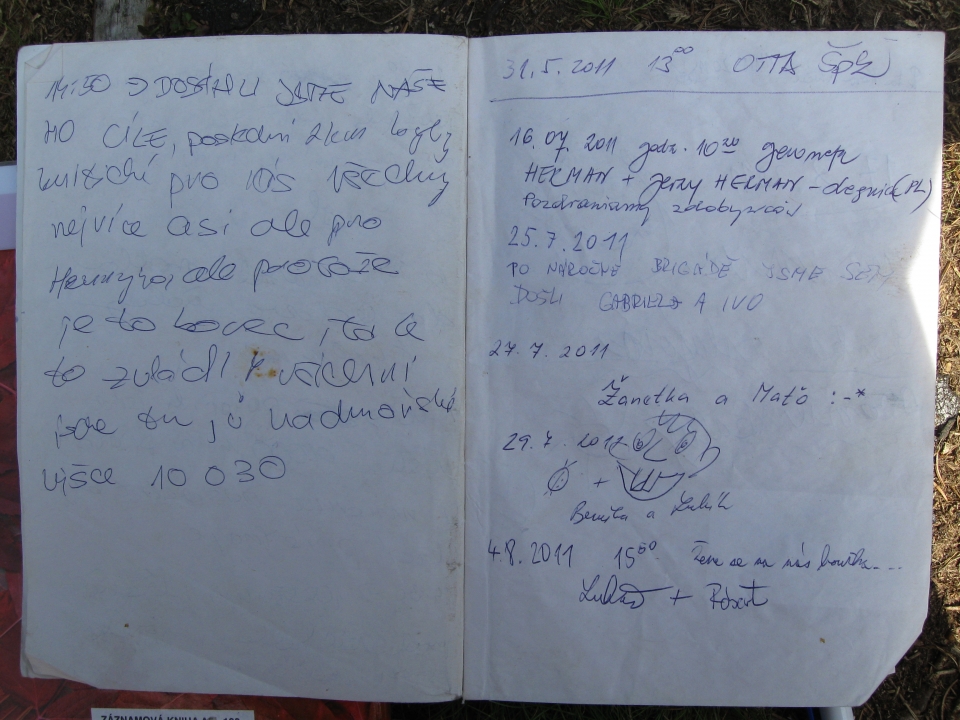 11:50 DOSÁHLI JSME NAŠE
HO CÍLE, poslední 2 km byly
pro nás všechny
nejvíce asi ale pro
ale protože
je to borec, tak
to zvládl
jsme tu, nadmořské
výšce 10 030
31.5.2011 13⁰⁰ OTTA
16.07. 2011 godz. 10²⁰ geometr
HERMAN + Jerzy HERMAN - Legnica (PL)
Pozdrawiamy zdobywców
25.7.2011
PO NÁROČNÉ BRIGÁDĚ JSME SEM
DOŠLI GABRIELA A IVO
27.7. 2011
Žanetka a Maťo :-*
29.7. 2011
+
a Lukík
4.8.2011 15⁵⁰ Žene se na nás bouřka...
Lukáš + Róbert
ZÁZNAMOVÁ KNIHA